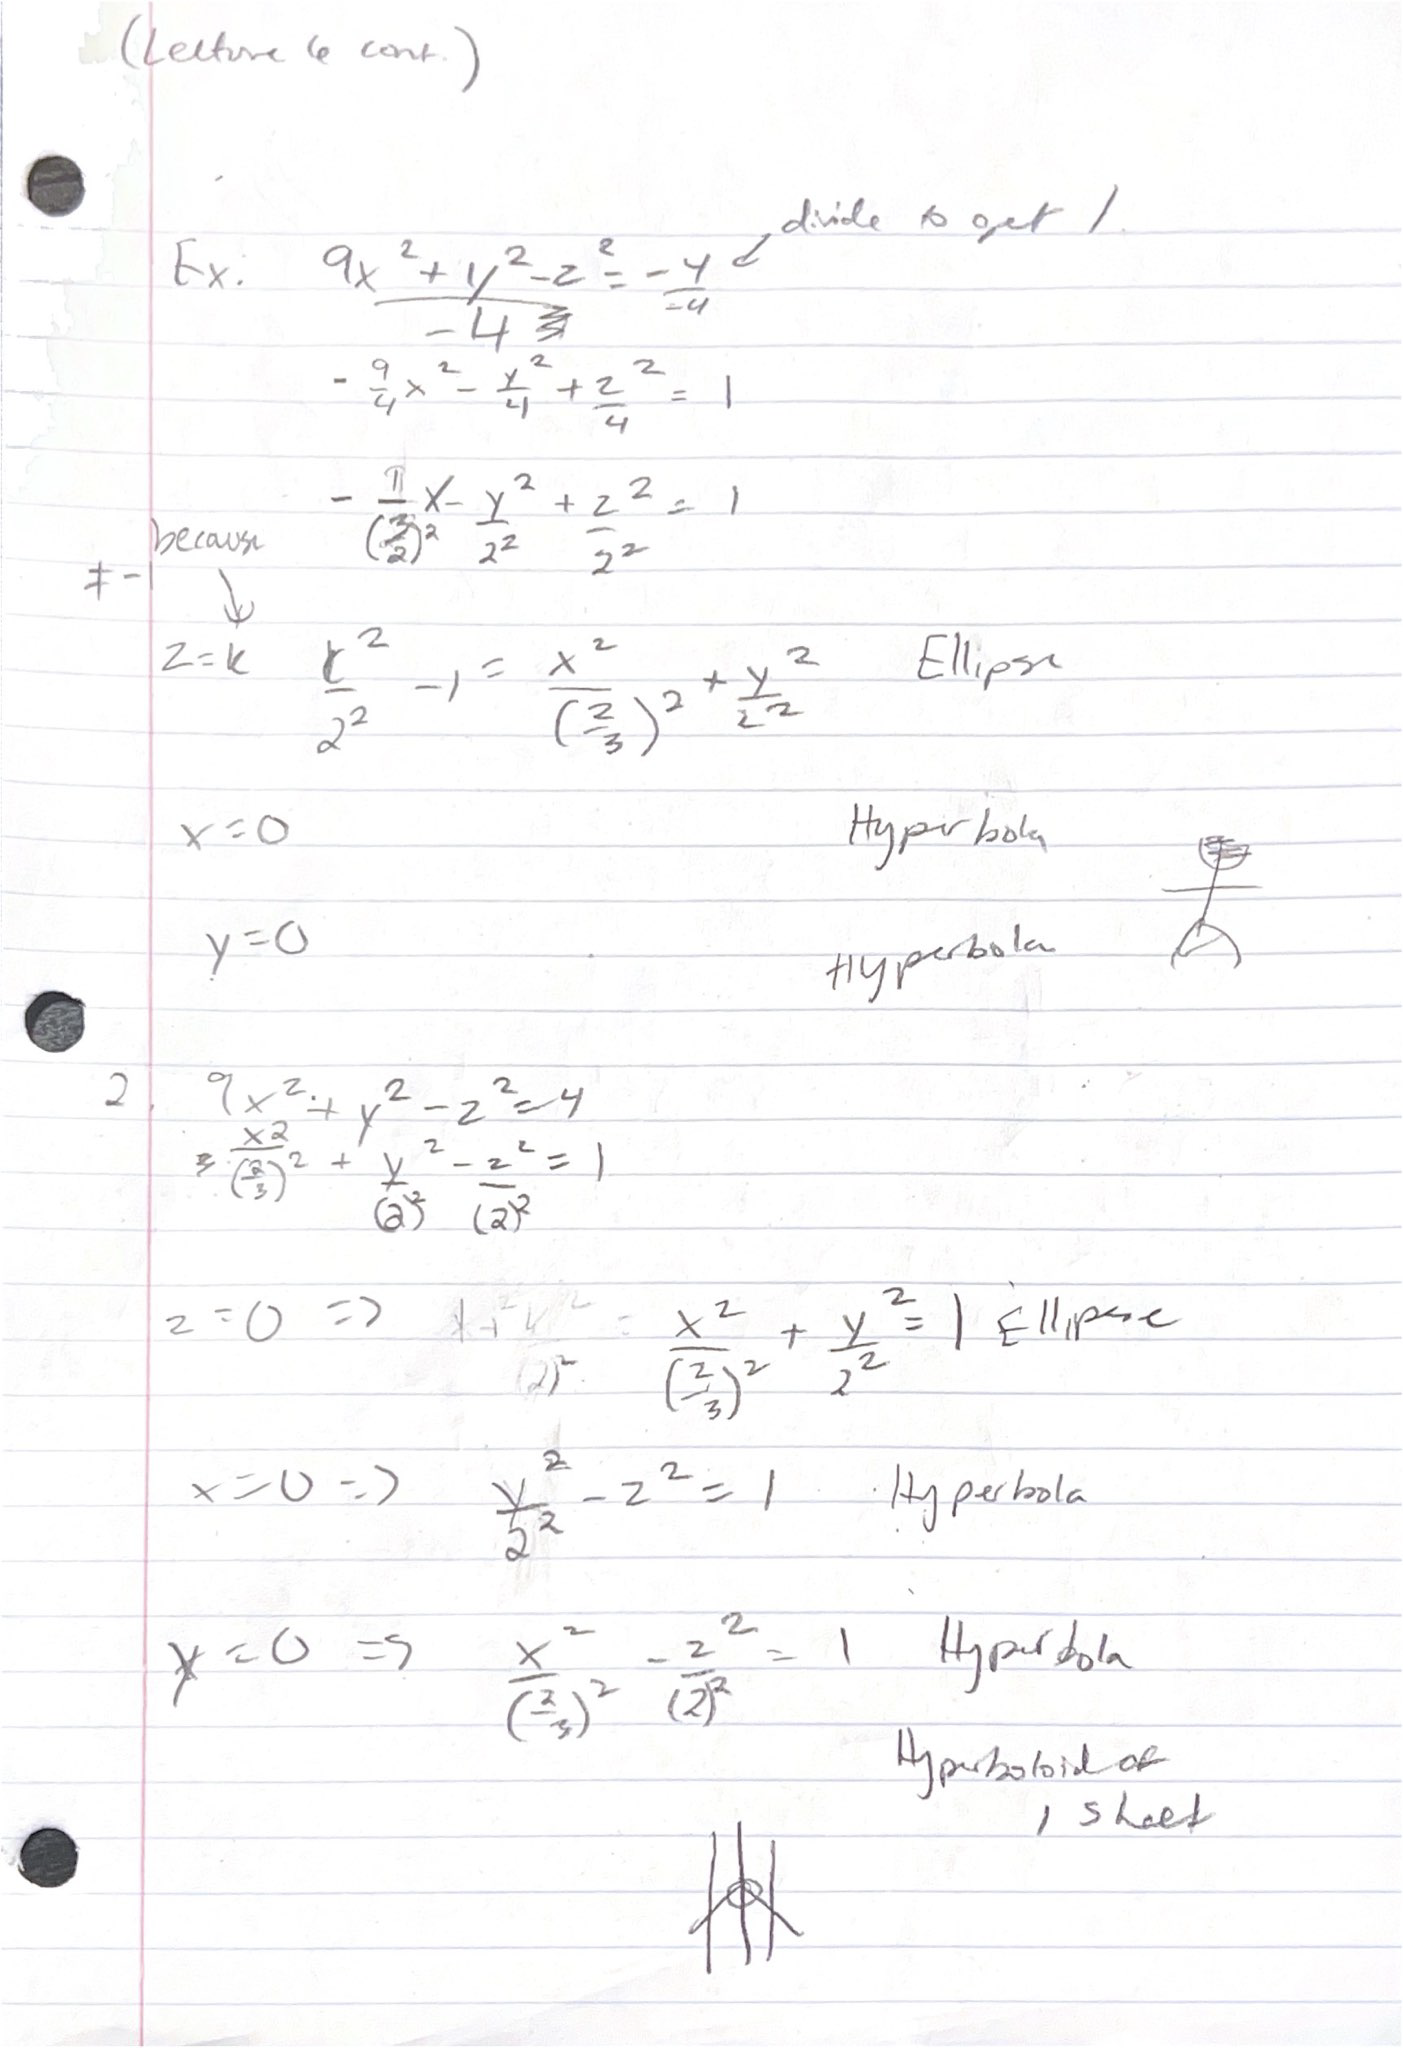 (Lecture 6 cont.)
divide to get 1
Ex: (9x² + y² - z²)/(-4) = -4/-4
- 9/4 x² - y²/4 + z²/4 = 1
- 1/(3/2)² x - y²/2² + z²/2² = 1
because
≠ -1
z=k k²/2² - 1 = x²/(2/3)² + y²/2² Ellipse
x=0 Hyperbola
y=0 Hyperbola
2. 9x² + y² - z² = 4
x²/(2/3)² + y²/(2)² - z²/(2)² = 1
z=0 => x²/(2/3)² + y²/2² = 1 Ellipse
x=0 => y²/2² - z² = 1 Hyperbola
y=0 => x²/(2/3)² - z²/(2)² = 1 Hyperbola
Hyperboloid of
1 sheet